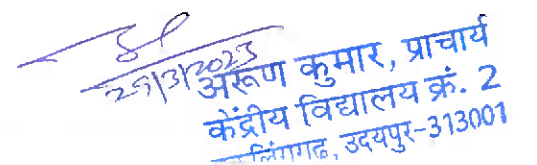 25/3/2023
अरूण कुमार, प्राचार्य
केंद्रीय विद्यालय क्रं. 2
उदयपुर-313001